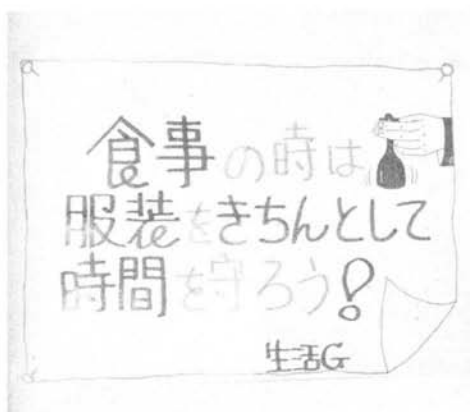 食事の時は
服装をきちんとして
時間を守ろう!
生活G